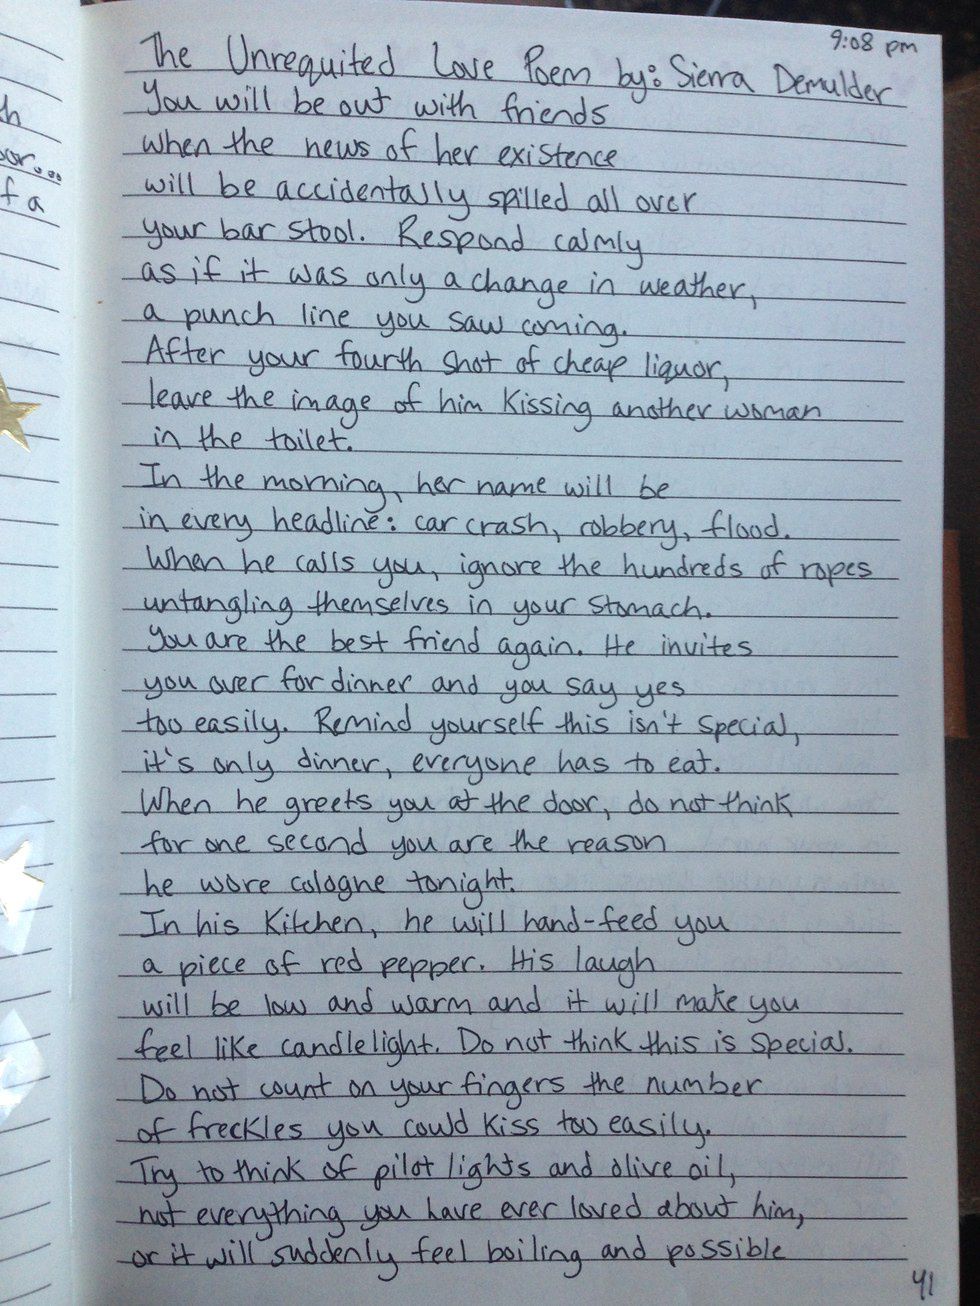 h
or...
f a
9:08 pm
The Unrequited Love Poem by: Sierra Demulder
You will be out with friends
when the news of her existence
will be accidentally spilled all over
your bar stool. Respond calmly
as if it was only a change in weather,
a punch line you saw coming.
After your fourth shot of cheap liquor,
leave the image of him kissing another woman
in the toilet.
In the morning, her name will be
in every headline: car crash, robbery, flood.
When he calls you, ignore the hundreds of ropes
untangling themselves in your stomach.
You are the best friend again. He invites
you over for dinner and you say yes
too easily. Remind yourself this isn't special,
it's only dinner, everyone has to eat.
When he greets you at the door, do not think
for one second you are the reason
he wore cologne tonight.
In his kitchen, he will hand-feed you
a piece of red pepper. His laugh
will be low and warm and it will make you
feel like candlelight. Do not think this is special.
Do not count on your fingers the number
of freckles you could kiss too easily.
Try to think of pilot lights and olive oil,
not everything you have ever loved about him,
or it will suddenly feel boiling and possible
41